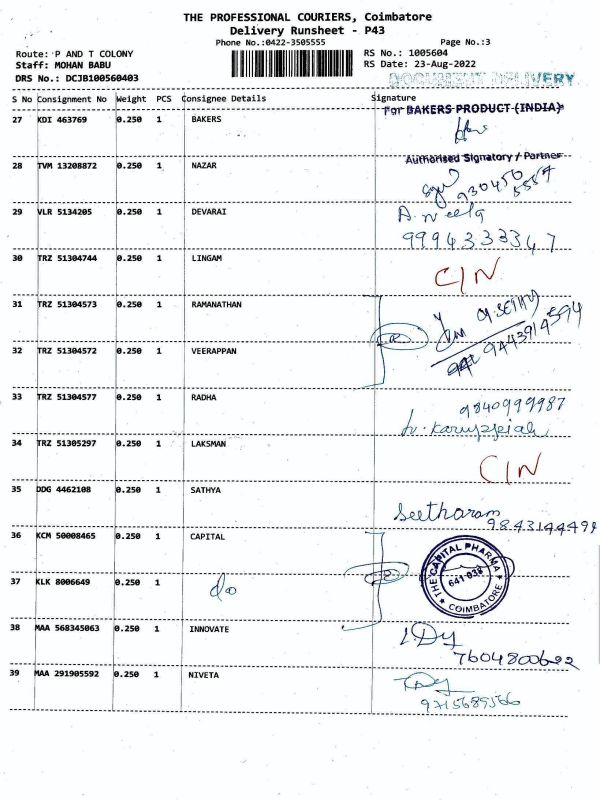 THE PROFESSIONAL COURIERS, Coimbatore
Delivery Runsheet - P43
Phone No.:0422-3505555 Page No.:3
Route: P AND T COLONY RS No.: 1005604
Staff: MOHAN BABU RS Date: 23-Aug-2022
DRS No.: DCJB100560403 DOCUMENT DELIVERY
S No Consignment No Weight PCS Consignee Details Signature
27 KDI 463769 0.250 1 BAKERS For BAKERS PRODUCT (INDIA)
Authorised Signatory / Partner
28 TVM 13208872 0.250 1 NAZAR
29 VLR 5134205 0.250 1 DEVARAI A. neela
9994333347
30 TRZ 51304744 0.250 1 LINGAM C/N
31 TRZ 51304573 0.250 1 RAMANATHAN
9443914594
32 TRZ 51304572 0.250 1 VEERAPPAN
33 TRZ 51304577 0.250 1 RADHA 9840999987
34 TRZ 51305297 0.250 1 LAKSMAN C/N
35 DDG 4462108 0.250 1 SATHYA Seetharam
9843144499
36 KCM 50008465 0.250 1 CAPITAL THE CAPITAL PHARMA
641-038
COIMBATORE
37 KLK 8006649 0.250 1 do
38 MAA 568345063 0.250 1 INNOVATE
7604800692
39 MAA 291905592 0.250 1 NIVETA
9715689566